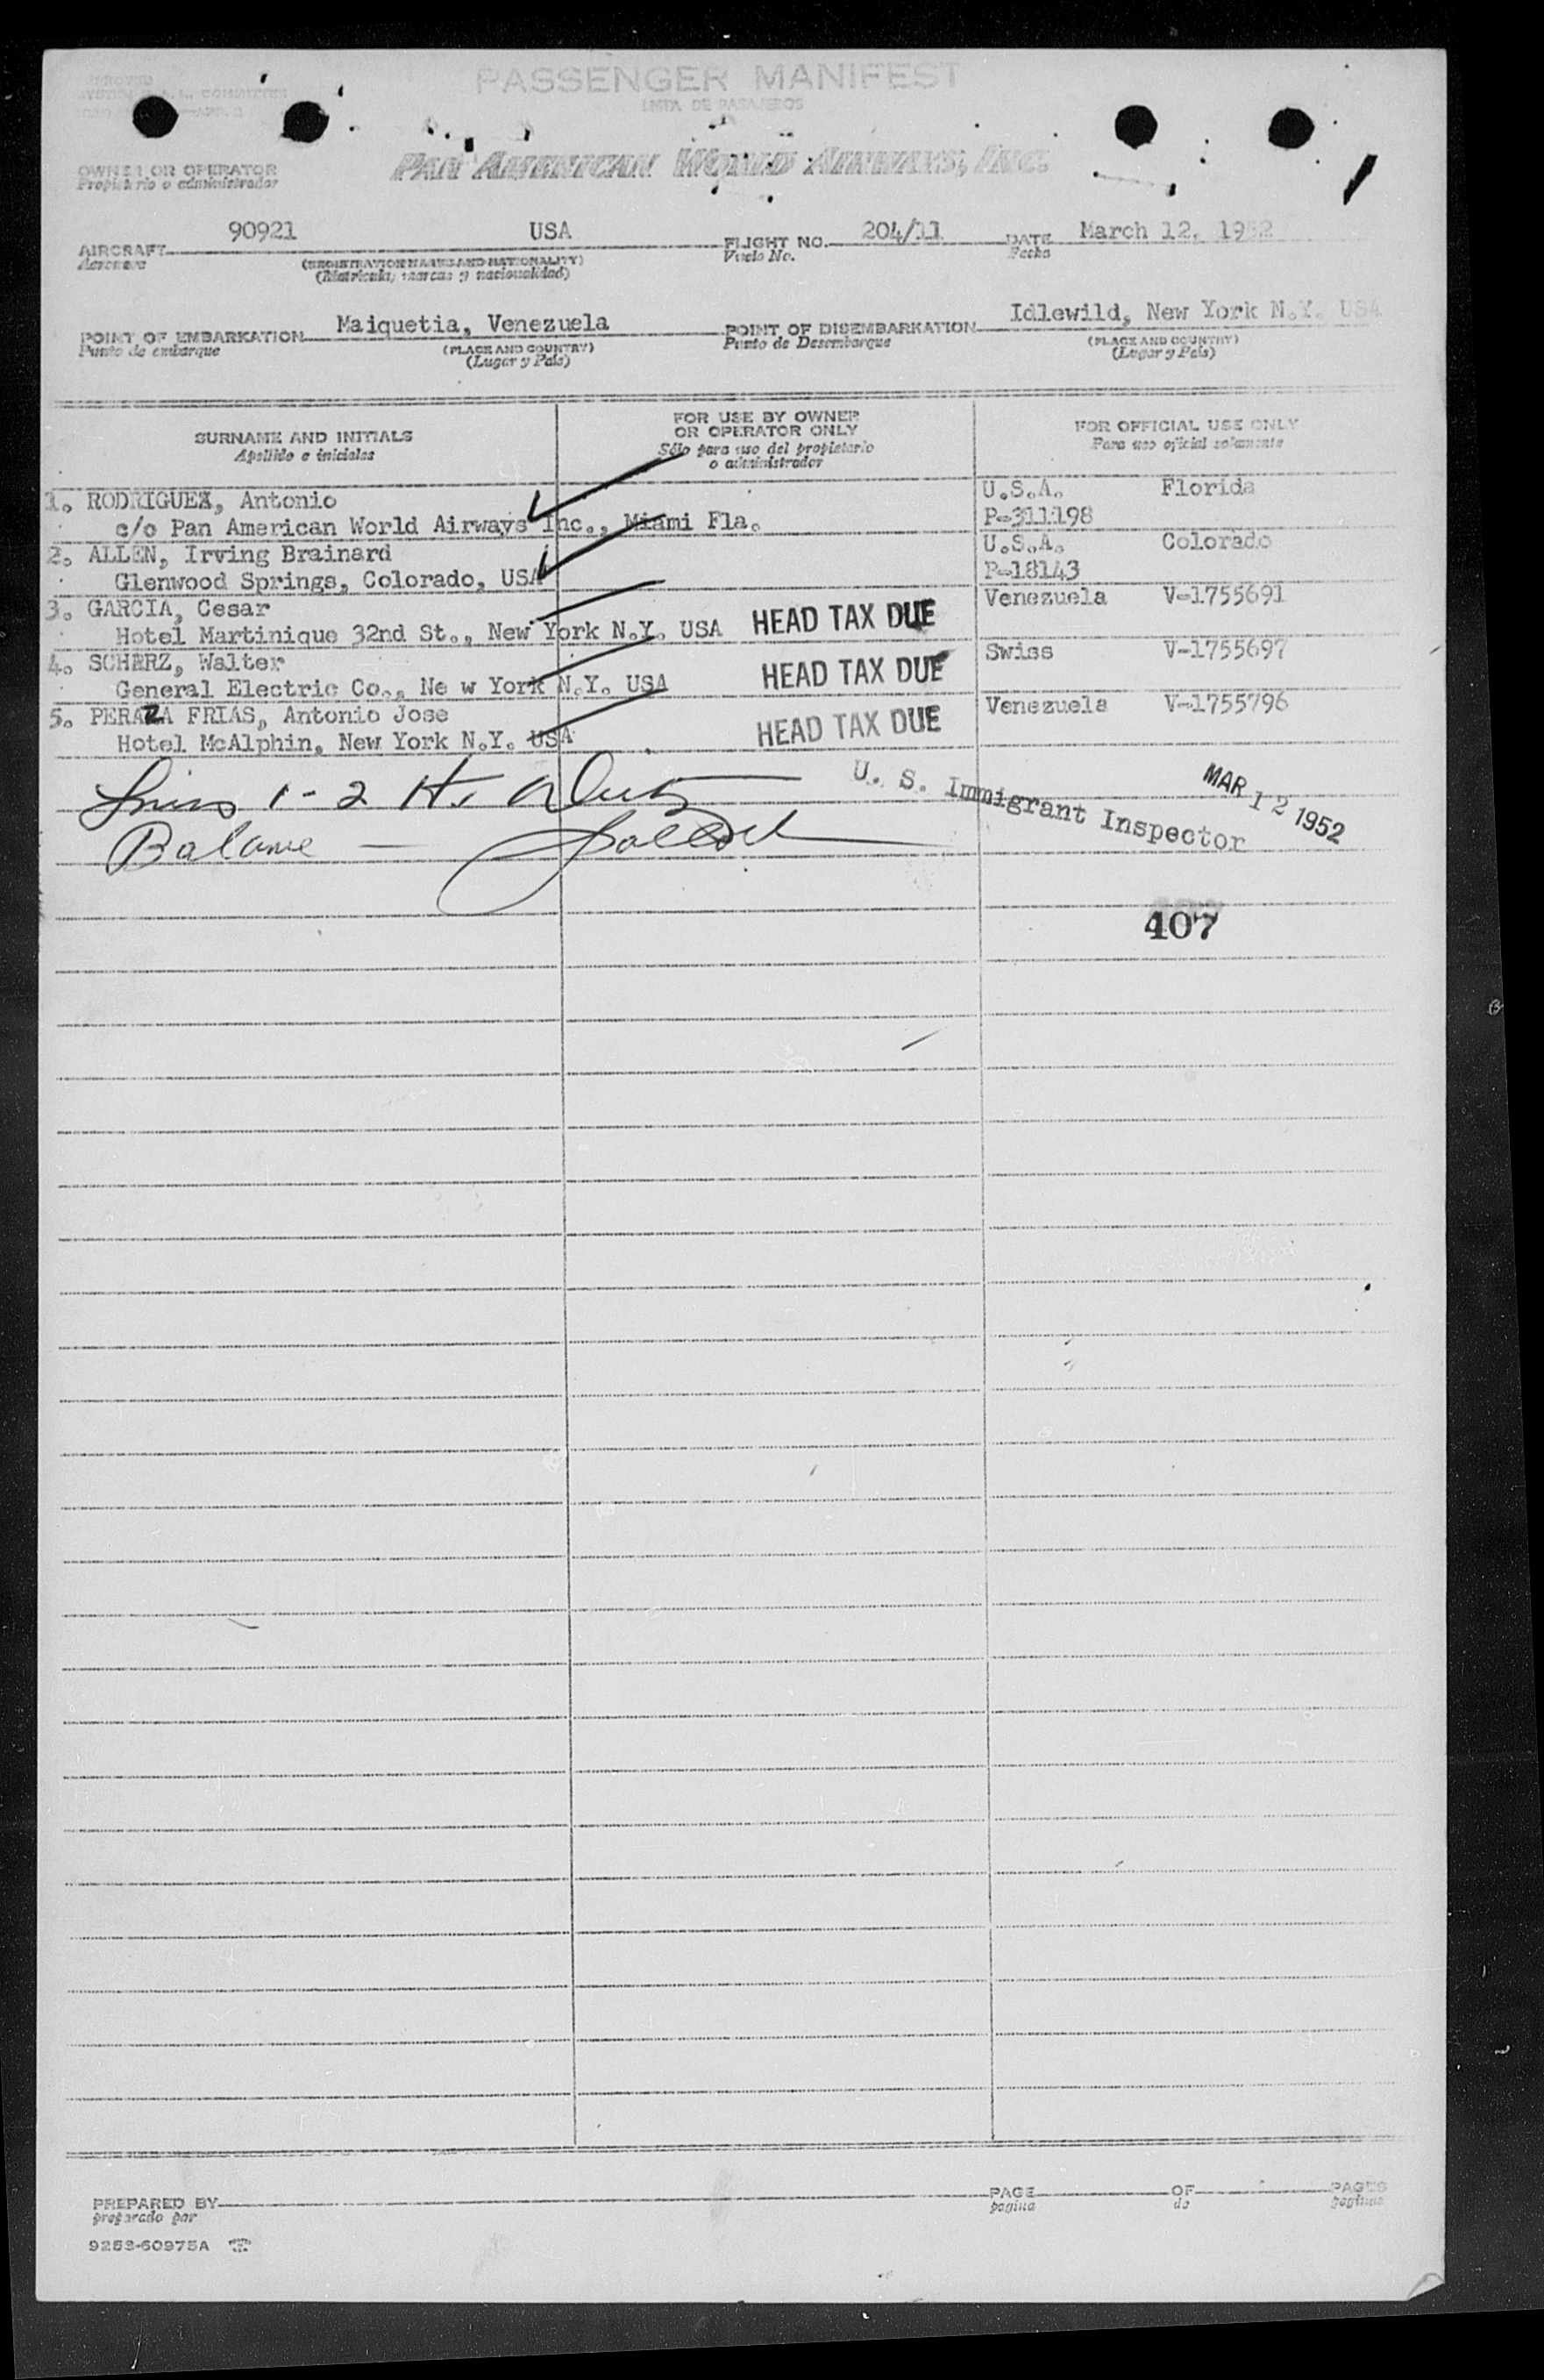 PASSENGER MANIFEST
LISTA DE PASAJEROS
OWNER OR OPERATOR
Propietario o administrador
PAN AMERICAN WORLD AIRWAYS, INC.
AIRCRAFT 90921 USA FLIGHT NO. 204/11 DATE March 12, 1952
Aeronave (REGISTRATION MARKS AND NATIONALITY) Vuelo No. Fecha
(Matricula, marcas y nacionalidad)
POINT OF EMBARKATION Maiquetia, Venezuela POINT OF DISEMBARKATION Idlewild, New York N.Y. USA
Punto de embarque (PLACE AND COUNTRY) Punto de Desembarque (PLACE AND COUNTRY)
(Lugar y Pais) (Lugar y Pais)
SURNAME AND INITIALS FOR USE BY OWNER OR OPERATOR ONLY FOR OFFICIAL USE ONLY
Apellido e iniciales Sólo para uso del propietario o administrador Para uso oficial solamente
1. RODRIGUEZ, Antonio U.S.A. Florida
c/o Pan American World Airways Inc., Miami Fla. P-311198
2. ALLEN, Irving Brainard U.S.A. Colorado
Glenwood Springs, Colorado, USA P-18143
3. GARCIA, Cesar Venezuela V-1755691
Hotel Martinique 32nd St., New York N.Y. USA HEAD TAX DUE
4. SCHERZ, Walter Swiss V-1755697
General Electric Co., Ne w York N.Y. USA HEAD TAX DUE
5. PERAZA FRIAS, Antonio Jose Venezuela V-1755796
Hotel McAlphin, New York N.Y. USA HEAD TAX DUE
1-2 U. S. Immigrant Inspector MAR 12 1952
Balance
407
PREPARED BY PAGE OF PAGES
preparado por pagina de paginas
9253-60975A